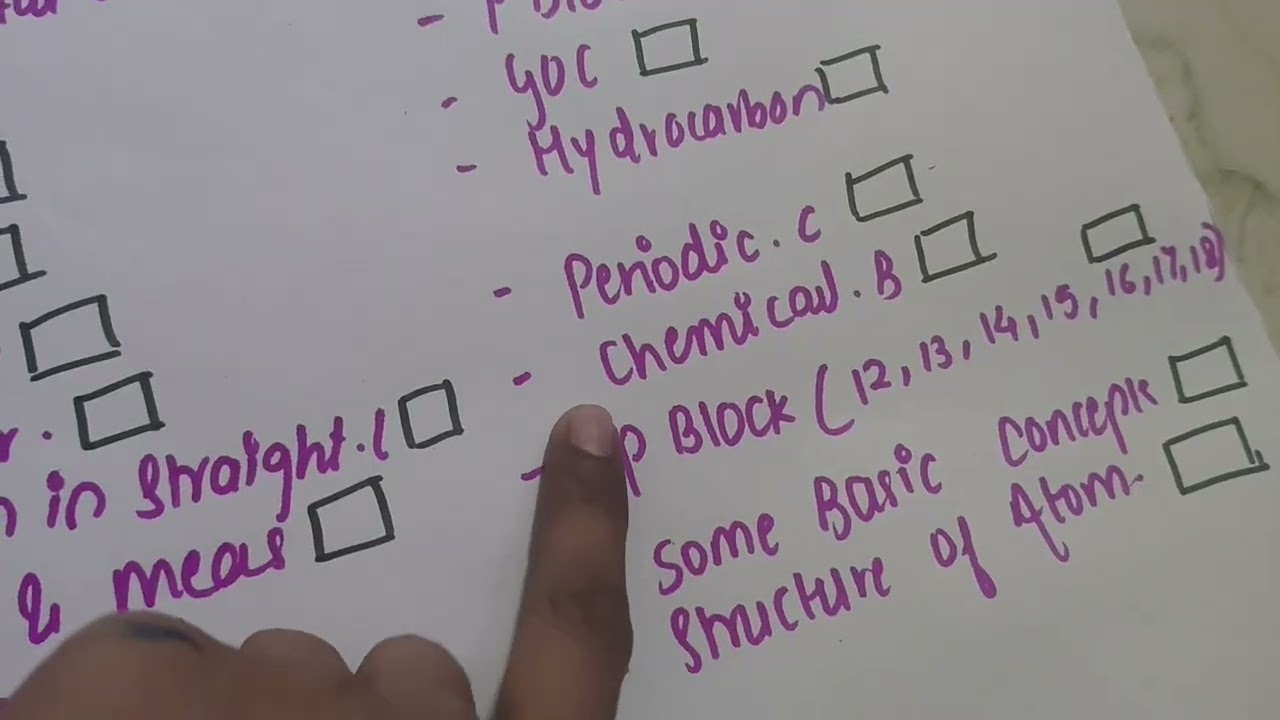 - P Blo
- GOC
- Hydrocarbon
- Periodic. C
- Chemical. B
- p BLOCK (12, 13, 14, 15, 16, 17, 18)
Some Basic Concepts
Structure of Atom.
in Straight. l
& meas